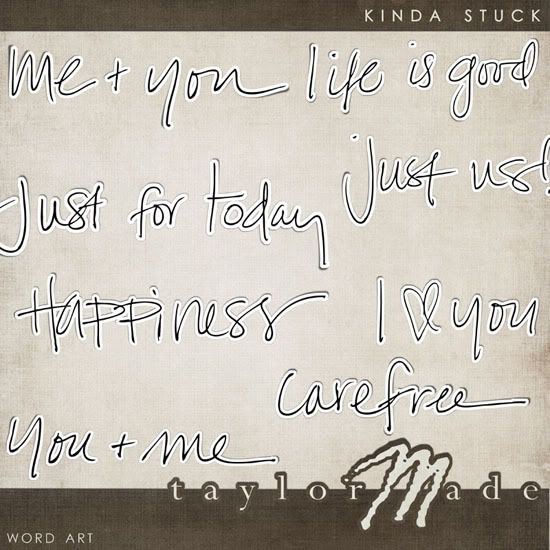 KINDA STUCK
me + you
life is good
just us!
Just for today
Happiness
I ♡ you
carefree
you + me
taylorMade
WORD ART